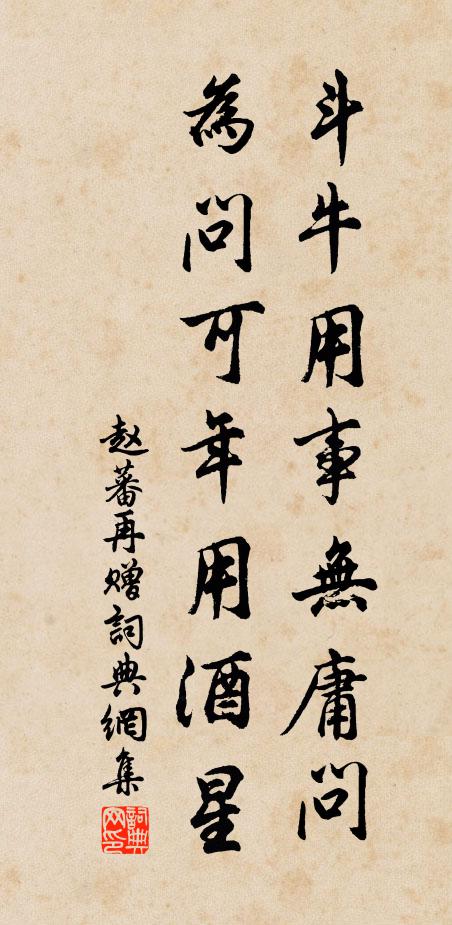 斗牛用事無庸問
為問可年用酒星
赵蕃再赠詞典網集
詞典网印